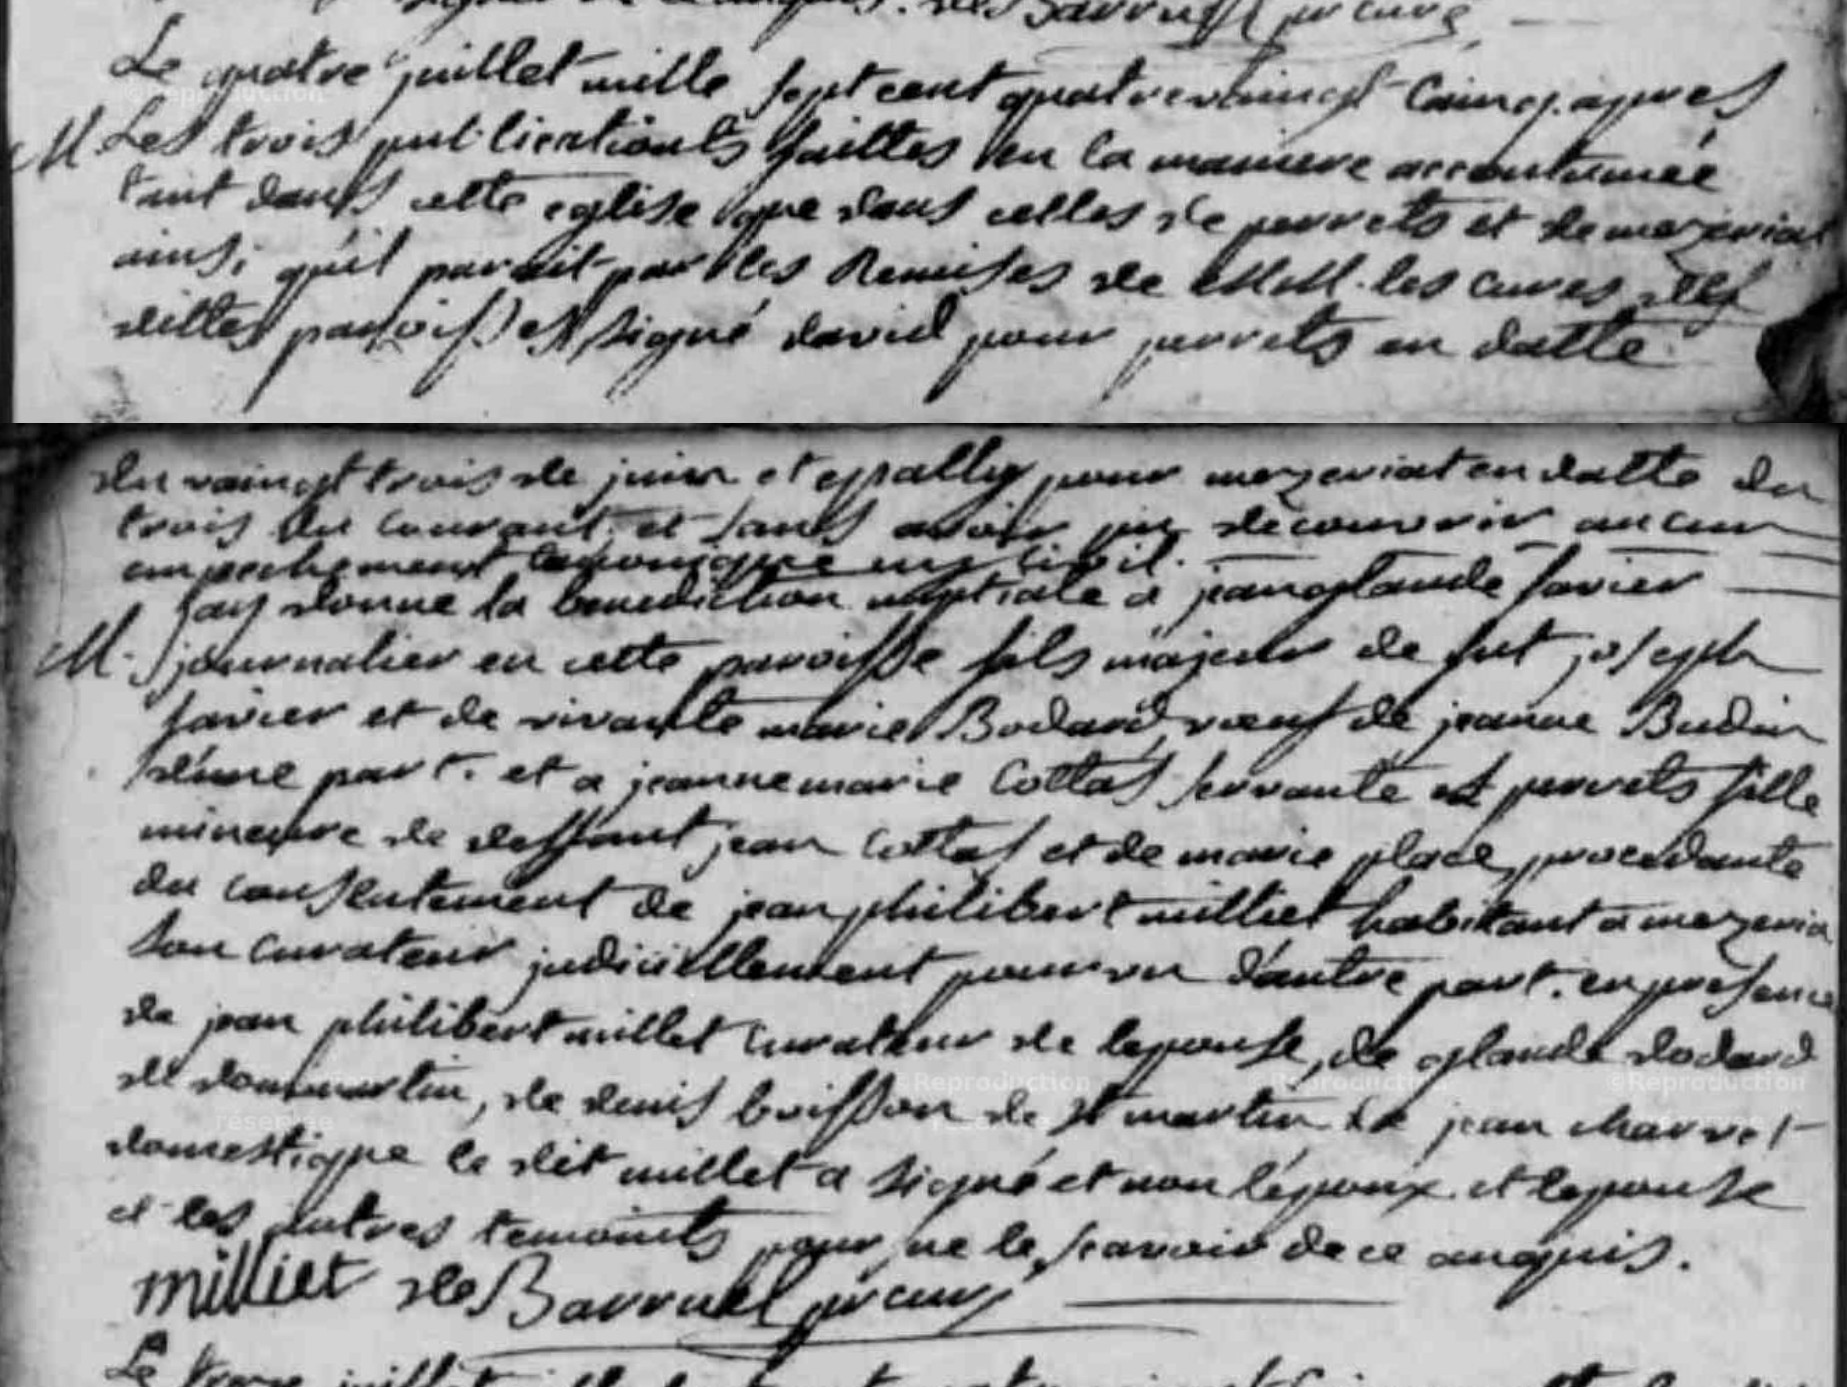 signer de ce enquis. de Barruel pr curé
Le quatre juillet mille sept cent quatrevaingt Cainq. apres
M Les trois publicationts faittes en la maniere accoutumée
tant dans cette eglise que dans celles de perrets et de mezeriat
ainsi quil parait par les Remises de M.M. les cures des
dittes paroiss et signé david pour perrets en datte
du vaingt trois de juin et epally pour mezeriat en datte du
trois du courant. et sans avoir pu decouvrir aucun
empechement canonique ny Civil.
jay donne la benediction nuptiale a jean glaude favier
M. journalier en cette paroisse fils majeur de fut joseph
favier et de vivante marie Bodard voeuf de jeanne Budin
d'une part. et a jeanne marie Cottas servante at perrets fille
mineure de deffant jean Cottas et de marie place, procedante
du consentement de jean philibert milliet habitant a mezeria
son Curateur judiciellement pourvu d'autre part. en presence
de jean philibert millet Curateur de lepouse, de glaude dodard
de dommartin, de denis boisson de st martin de jean charvet
domestique le dit millet a signé et non l'epoux. et lepouse
et les autres temoints pour ne le scavoir de ce anquis.
milliet de Barruel pr cure
Le treze juillet